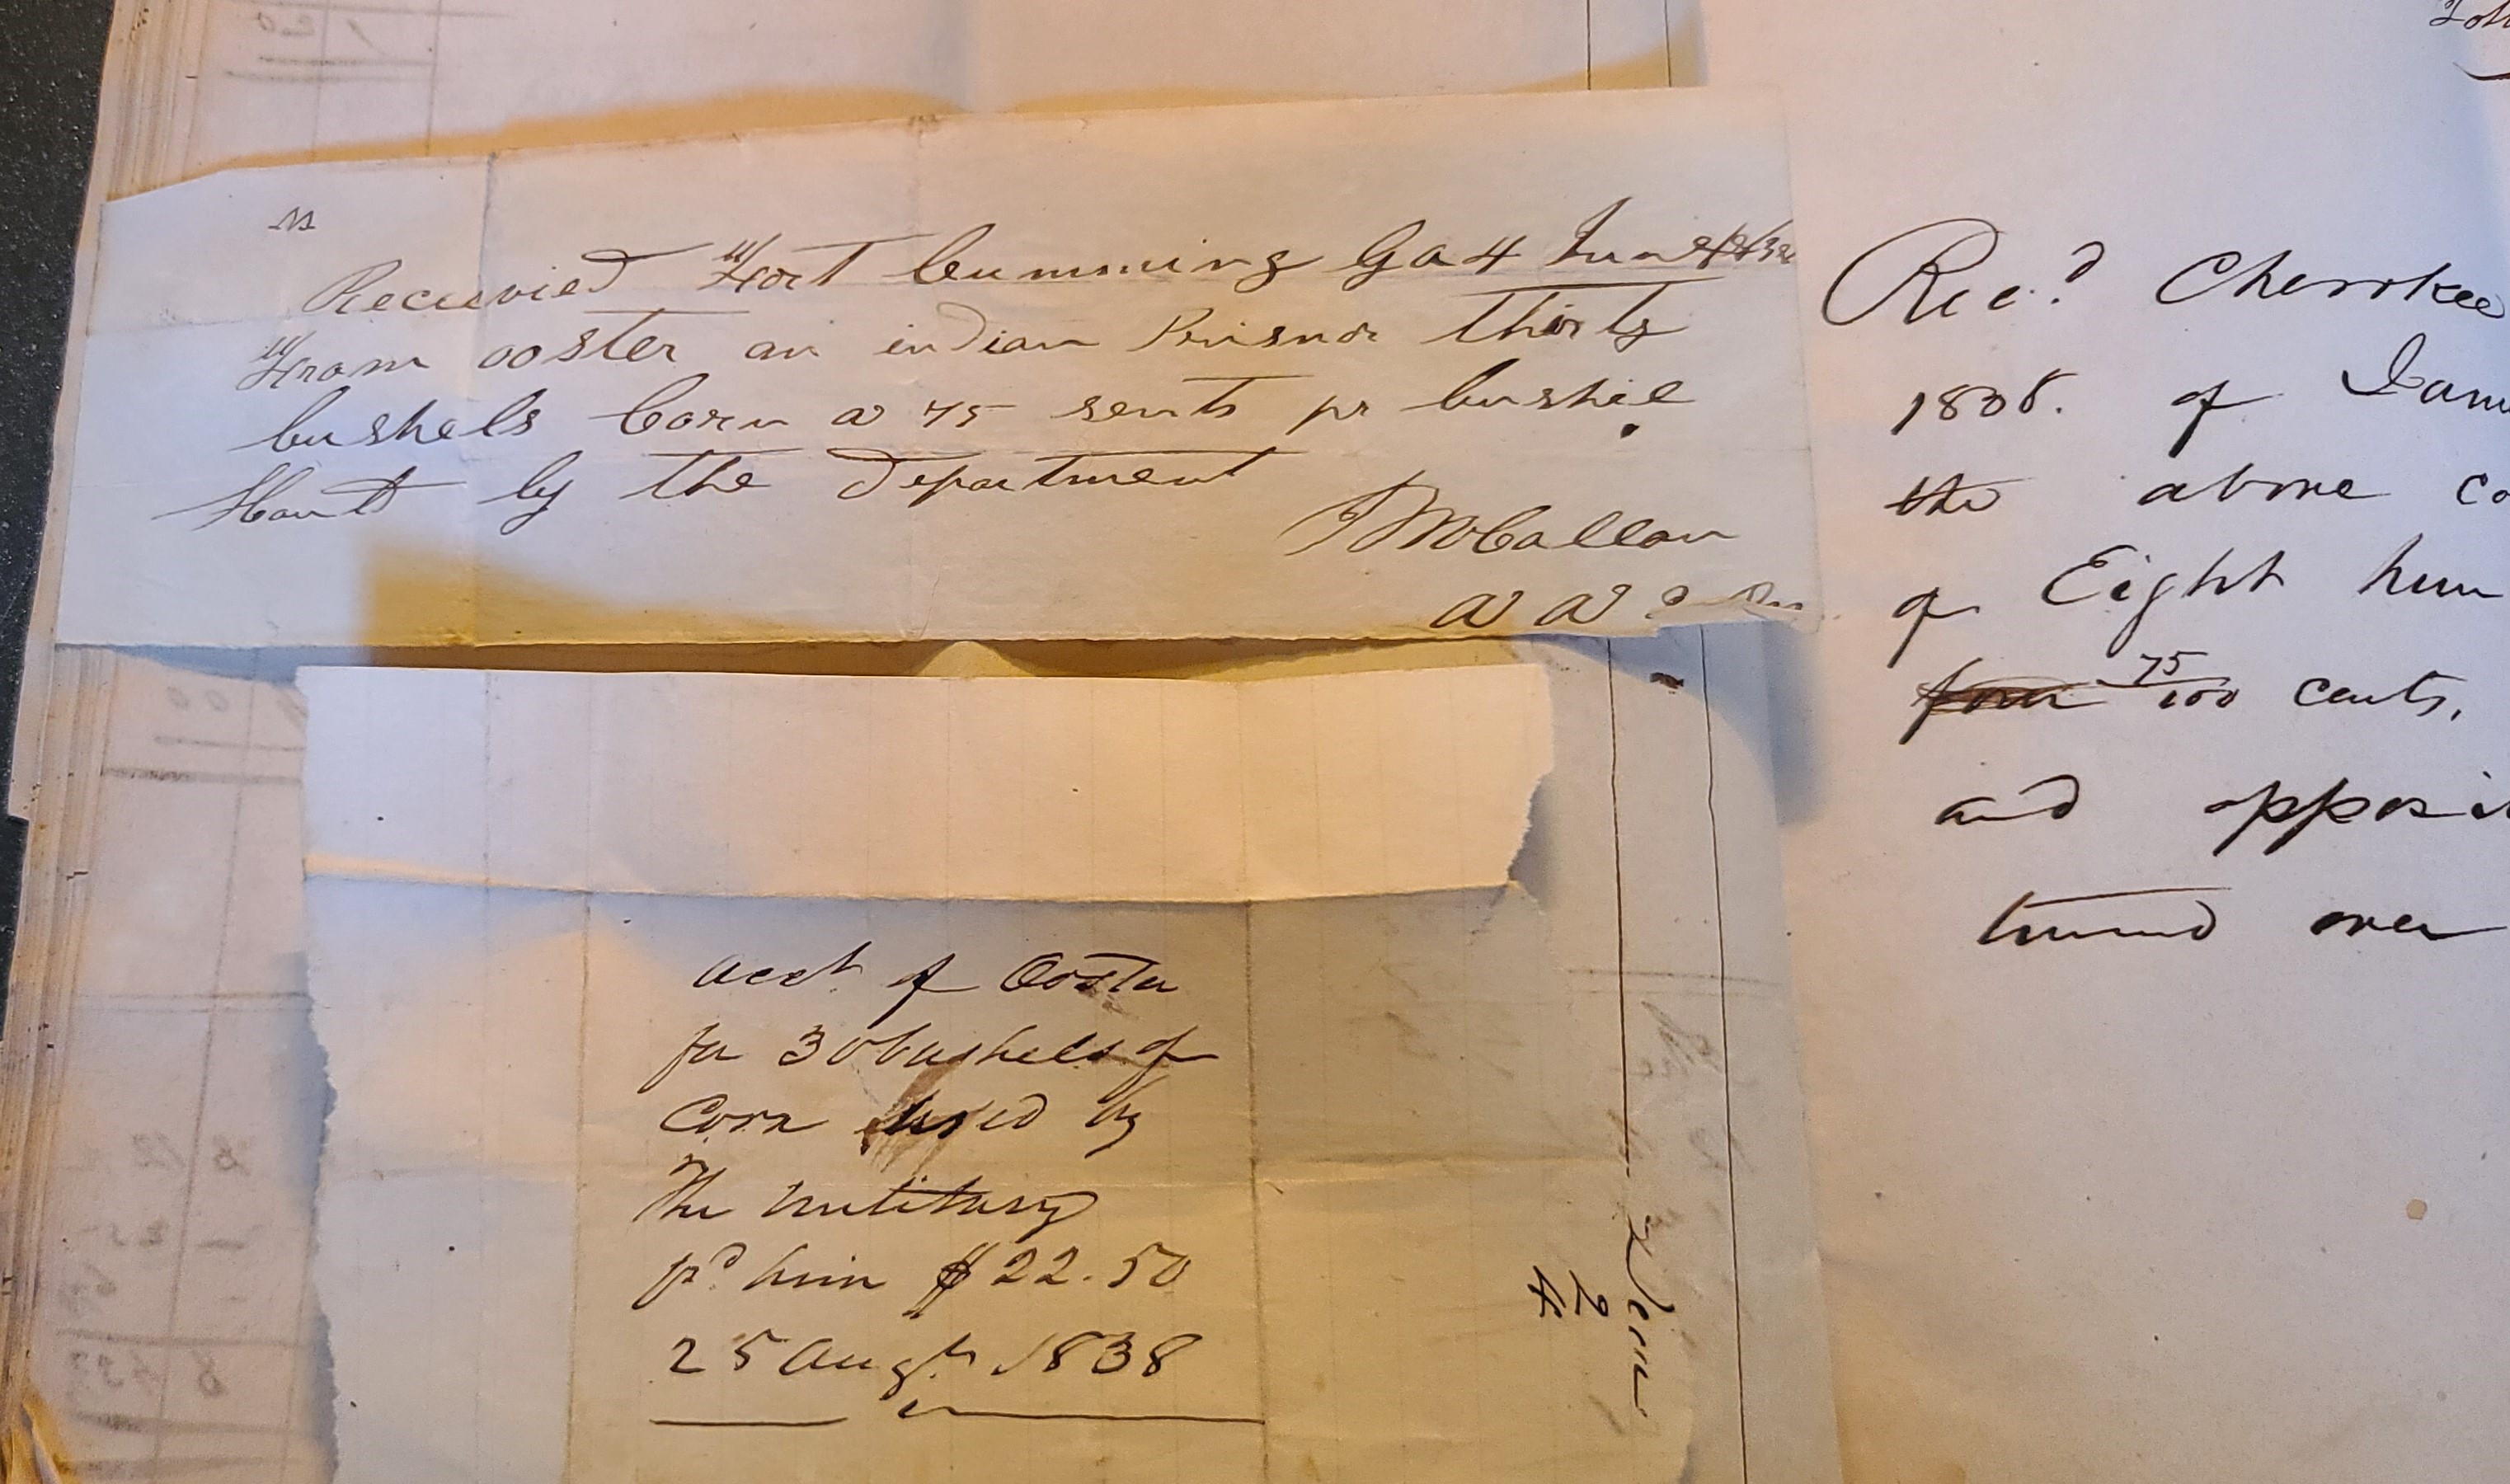 Receevied Fort Cumming Ga 4 June 1838
From ooster an indian Prisnor thirty
bushels Corn a 75 sents pr bushel
by the Department
A A
acct. of Ooster
for 30 bushels of
Corn used by
The military
pd him $22.50
25 Augt. 1838
2
4
Recd Cherokee
1838. of
the above
of Eight hun
four 75/100 cents,
and opposi
turned over